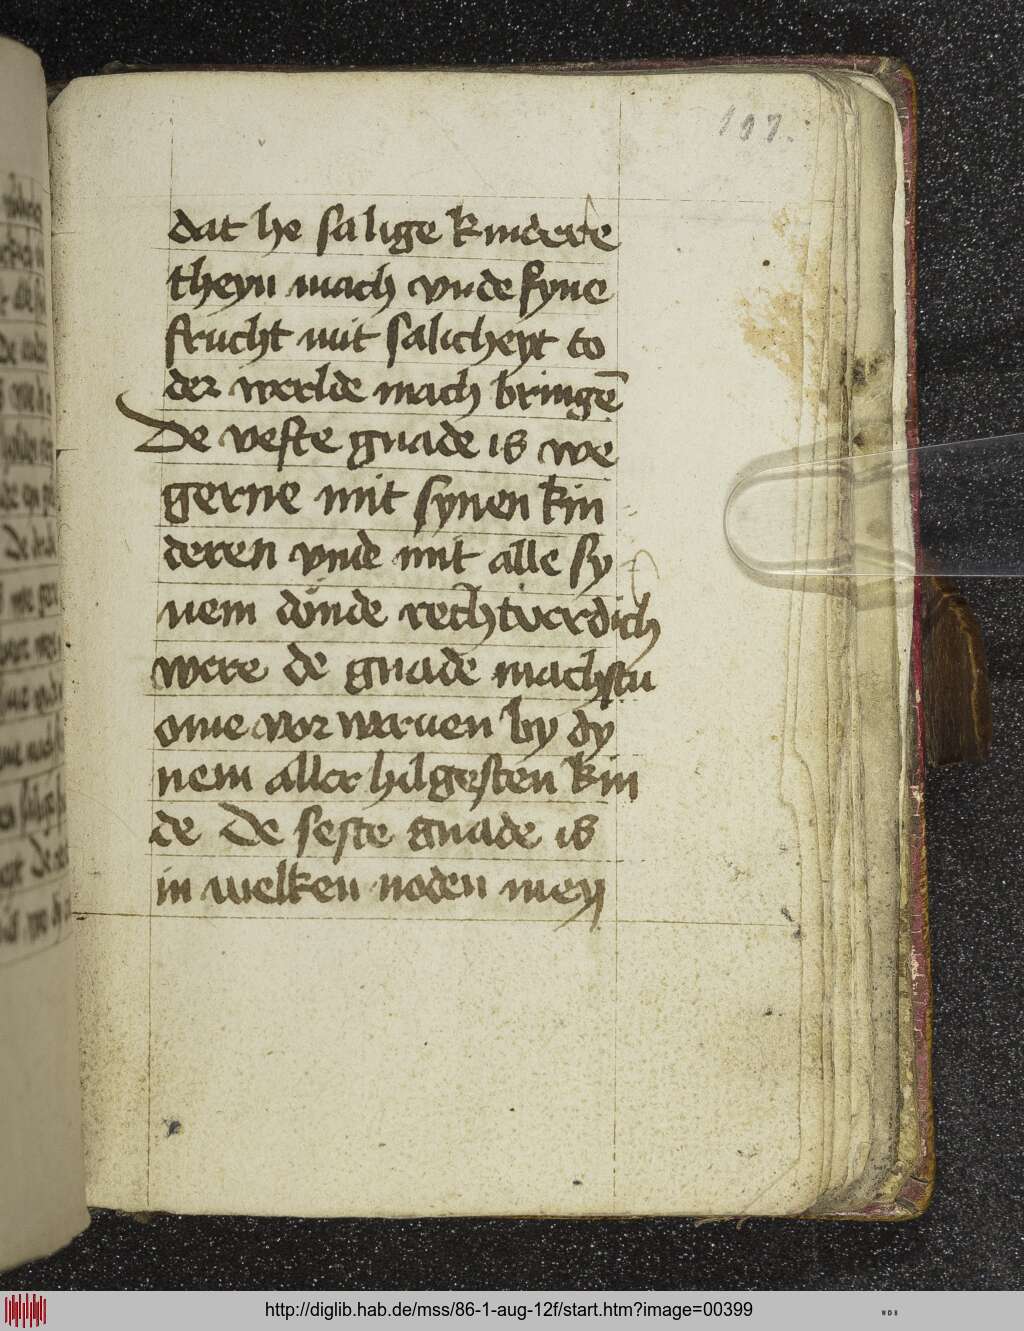 197.
dat he salige kindere
theyn mach vnde syne
frucht mit salicheyt to
der werlde mach bringē
De veste gnade is we
gerne mit synen kin
deren vnde mit alle sy
nem donde rechtverdich
were de gnade machstu
ome vor weruen by dy
nem aller hilgesten kin
de De seste gnade is
in welken noden mey
http://diglib.hab.de/mss/86-1-aug-12f/start.htm?image=00399